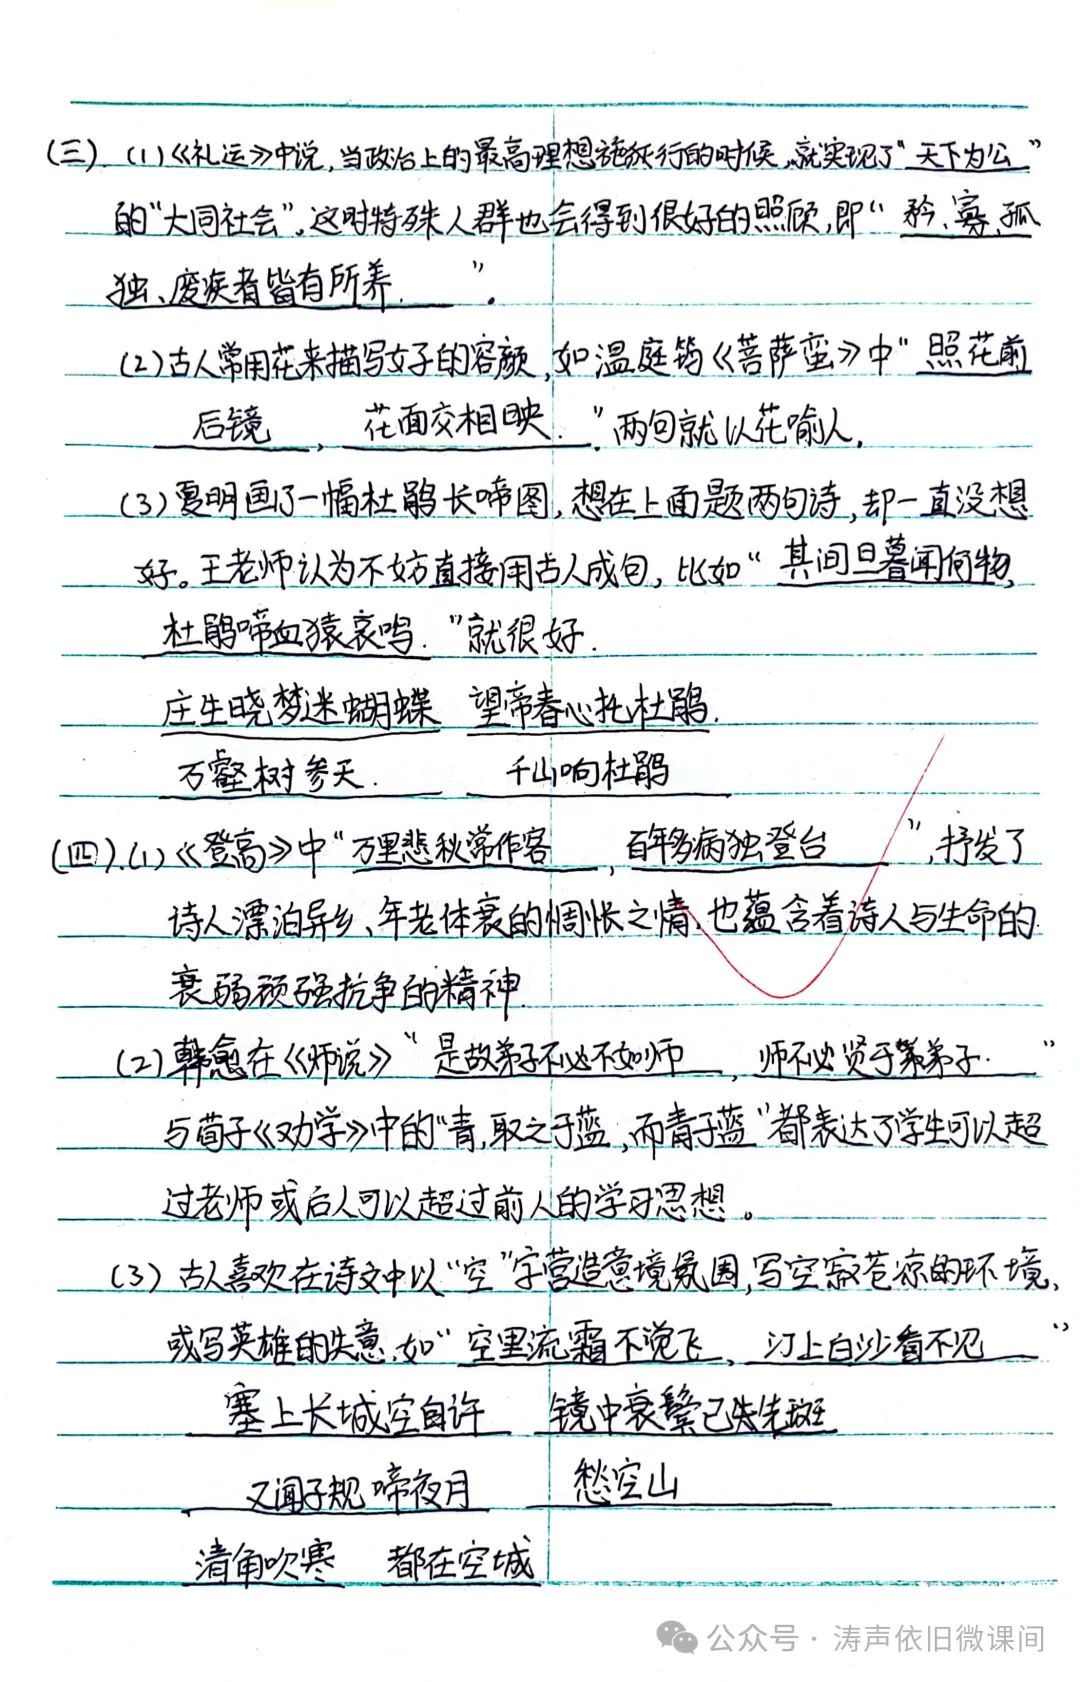 (三). (1)《礼运》中说,当政治上的最高理想施行的时候,就实现了“天下为公”
的“大同社会”,这时特殊人群也会得到很好的照顾,即“矜、寡、孤
独、废疾者皆有所养.”。
(2)古人常用花来描写女子的容颜,如温庭筠《菩萨蛮》中“照花前
后镜,花面交相映.”两句就以花喻人。
(3)夏明画了一幅杜鹃长啼图,想在上面题两句诗,却一直没想
好。王老师认为不妨直接用古人成句,比如“其间旦暮闻何物,
杜鹃啼血猿哀鸣.”就很好.
庄生晓梦迷蝴蝶 望帝春心托杜鹃.
万壑树参天. 千山响杜鹃
(四).(1)《登高》中“万里悲秋常作客,百年多病独登台”,抒发了
诗人漂泊异乡、年老体衰的惆怅之情,也蕴含着诗人与生命的
衰弱顽强抗争的精神.
(2)韩愈在《师说》“是故弟子不必不如师,师不必贤于弟子.”
与荀子《劝学》中的“青,取之于蓝,而青于蓝”都表达了学生可以超
过老师或后人可以超过前人的学习思想。
(3)古人喜欢在诗文中以“空”字营造意境氛围,写空寂苍凉的环境,
或写英雄的失意.如“空里流霜不觉飞,汀上白沙看不见”
塞上长城空自许 镜中衰鬓已先斑
又闻子规啼夜月 愁空山
清角吹寒 都在空城
公众号·涛声依旧微课间